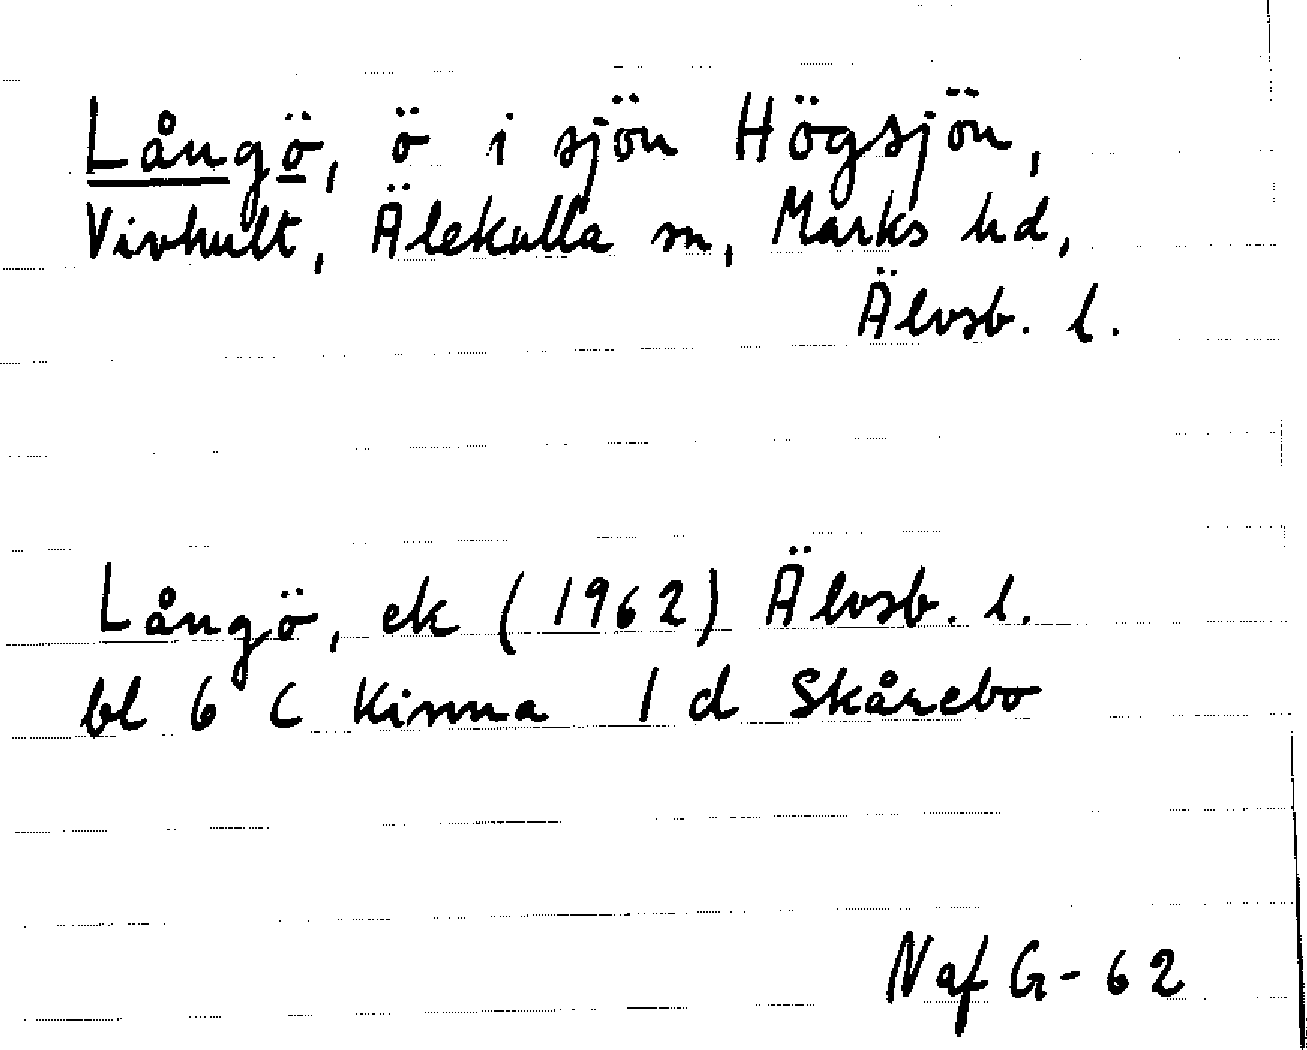 Långö, ö i sjön Högsjön,
Vivhult, Älekulla sn, Marks hd,
Älvsb. l.
Långö, ek (1962) Älvsb. l.
bl 6 C Kinna 1 d Skårebo
NafG-62